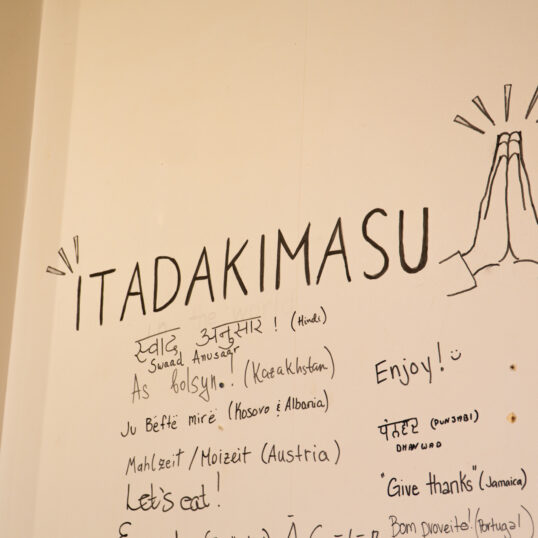 ITADAKIMASU
स्वाद अनुसार ! (Hindi)
Swaad Anusaar
As bolsyn..! (Kazakhstan)
Ju Bëftë mirë (Kosovo & Albania)
Mahlzeit / Moizeit (Austria)
Let's eat!
Enjoy!
(PUNJABI)
DHANWAD
"Give thanks" (Jamaica)
Bom proveito! (Portugal)